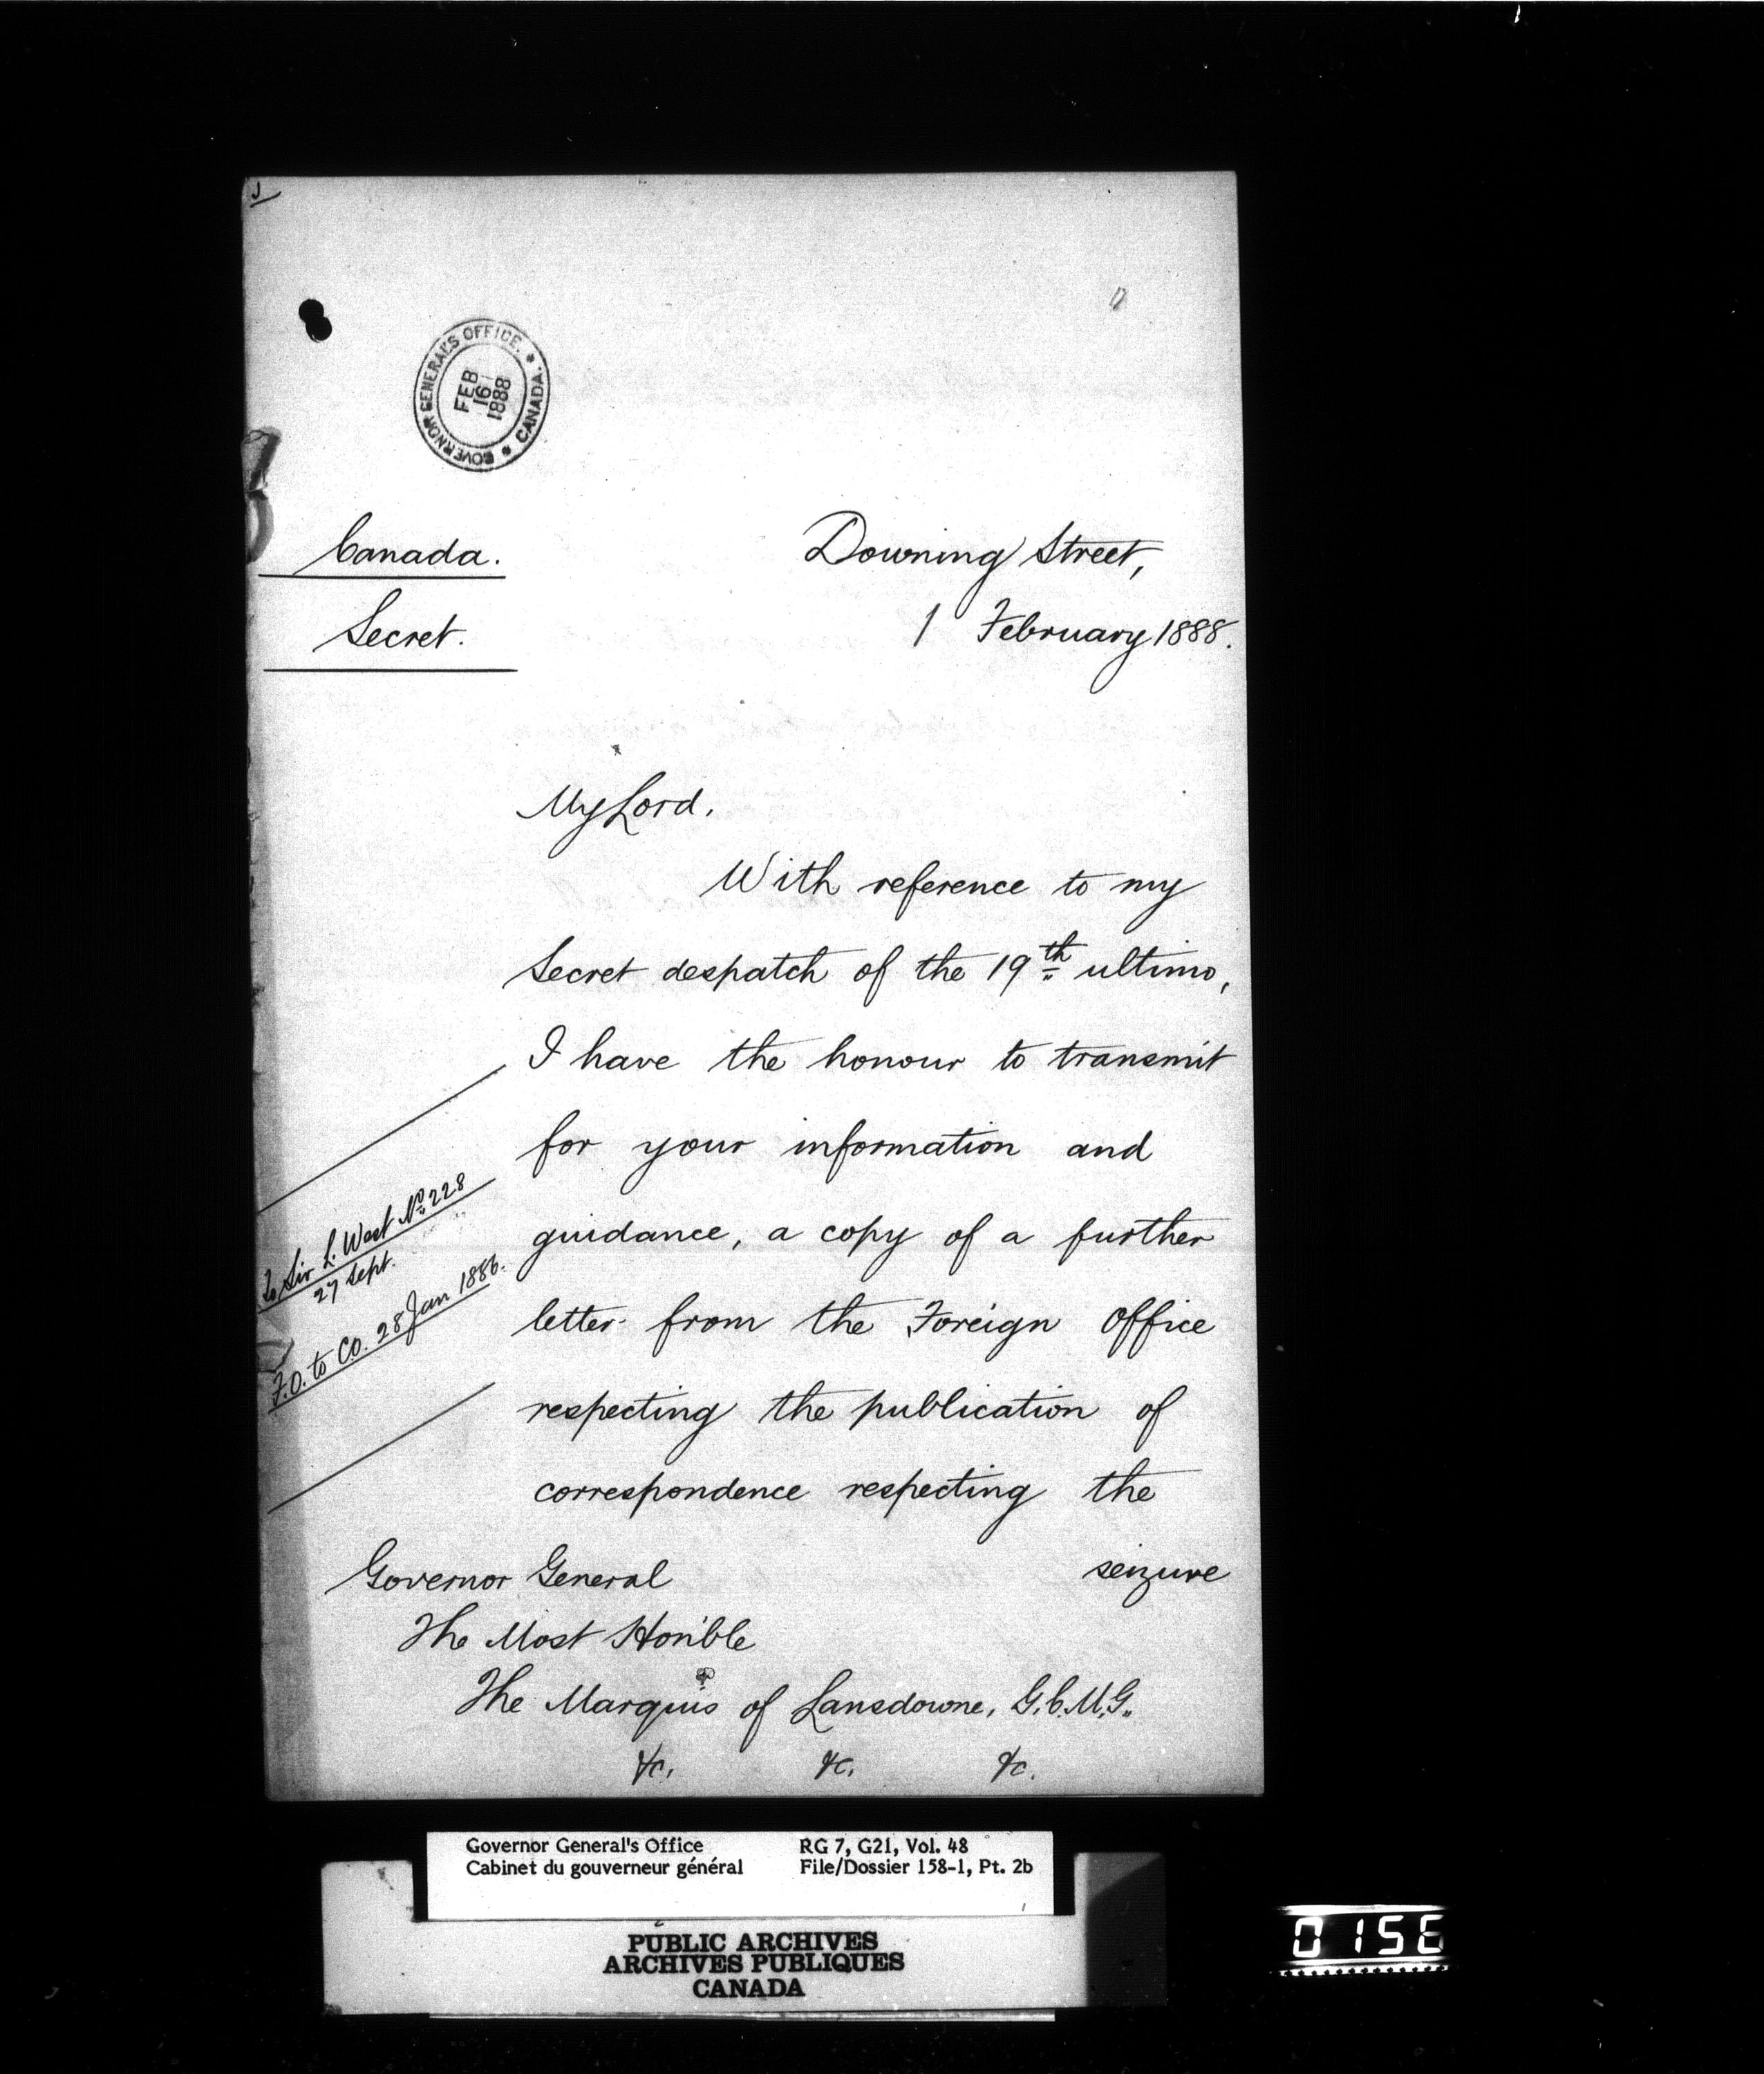 GOVERNOR GENERAL'S OFFICE.
CANADA.
FEB
16
1888
Canada.
Secret.
Downing Street,
1 February 1888.
My Lord,
With reference to my
Secret despatch of the 19th ultimo,
I have the honour to transmit
for your information and
guidance, a copy of a further
letter from the Foreign Office
respecting the publication of
correspondence respecting the
seizure
To Sir L. West No. 228
27 Sept.
F.O. to C.O. 28 Jan 1886.
Governor General
The Most Honble
The Marquis of Lansdowne, G.C.M.G.
&c. &c. &c.
Governor General's Office
Cabinet du gouverneur général
RG 7, G21, Vol. 48
File/Dossier 158-1, Pt. 2b
PUBLIC ARCHIVES
ARCHIVES PUBLIQUES
CANADA